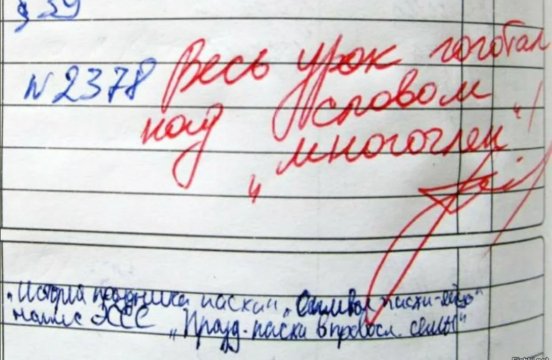 § 39
№ 2378 Весь урок гоготал
над словом
„многочлен"!
„История праздника пасхи" „Символ пасхи-яйцо"
„Празд-пасха в правосл семье"